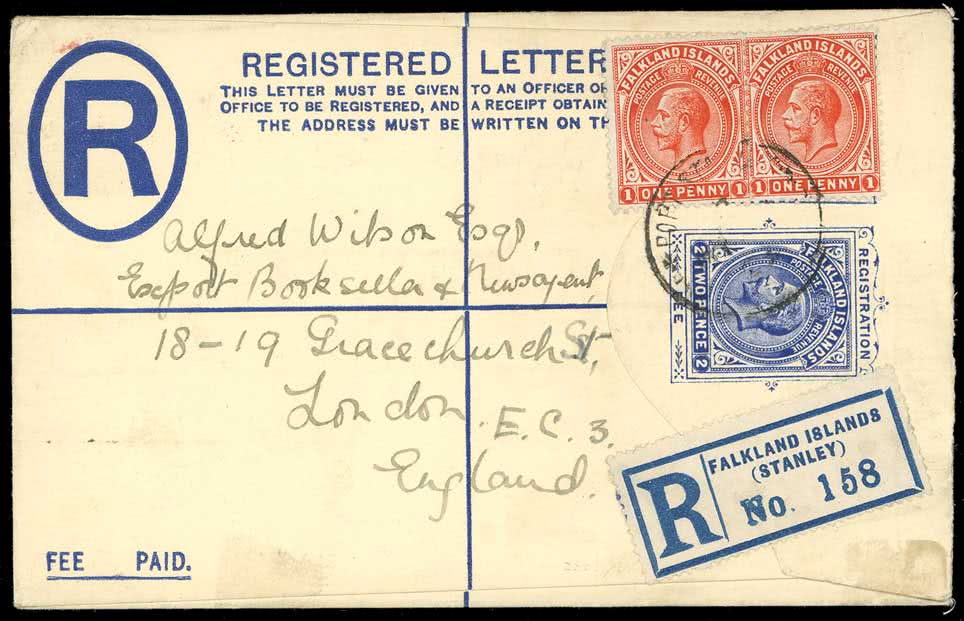 R
REGISTERED LETTER
THIS LETTER MUST BE GIVEN TO AN OFFICER OF
OFFICE TO BE REGISTERED, AND A RECEIPT OBTAIN
THE ADDRESS MUST BE WRITTEN ON TH
FALKLAND ISLANDS
POSTAGE REVENUE
1 ONE PENNY 1
FALKLAND ISLANDS
POSTAGE REVENUE
1 ONE PENNY 1
Alfred Wilson Esqr,
Export Bookseller & Newsagent,
18-19 Gracechurch St,
London. E.C.3.
England.
REGISTRATION
FALKLAND ISLANDS
POSTAGE REVENUE
2 TWO PENCE 2
FEE
R
FALKLAND ISLANDS
(STANLEY)
No. 158
FEE PAID.